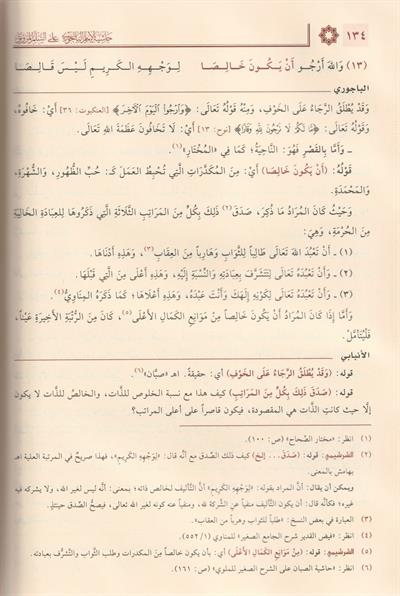 ١٣٤ حاشية الإمام الباجوري على السلم المرونق
(١٣) وَاللهَ أَرْجُو أَنْ يَكُونَ خَالِصًا لِوَجْهِهِ الكَرِيمِ لَيْسَ قَالِصَا
الباجوري
وَقَدْ يُطْلَقُ الرَّجَاءُ عَلَى الخَوْفِ، وَمِنْهُ قَوْلُهُ تَعَالَى: ﴿وَارْجُوا الْيَوْمَ الْآخِرَ﴾ [العنكبوت: ٣٦] أَيْ: خَافُوهُ،
وَقَوْلُهُ تَعَالَى: ﴿مَّا لَكُمْ لَا تَرْجُونَ لِلَّهِ وَقَارًا﴾ [نوح: ١٣] أَيْ: لَا تَخَافُونَ عَظَمَةَ اللهِ تَعَالَى.
ـ وَأَمَّا بِالقَصْرِ فَهُوَ: النَّاحِيَةُ؛ كَمَا فِي «المُخْتَارِ»(١).
قَوْلُهُ: (أَنْ يَكُونَ خَالِصًا) أَيْ: مِنَ المُكَدِّرَاتِ الَّتِي تُحْبِطُ العَمَلَ كَـ: حُبِّ الظُّهُورِ، وَالشُّهْرَةِ،
وَالمَحْمَدَةِ.
وَحَيْثُ كَانَ المُرَادُ مَا ذُكِرَ، صَدَقَ(٢) ذَلِكَ بِكُلٍّ مِنَ المَرَاتِبِ الثَّلَاثَةِ الَّتِي ذَكَرُوهَا لِلعِبَادَةِ الخَالِيَةِ
مِنَ الحُرْمَةِ، وَهِيَ:
(١) ـ أَنْ تَعْبُدَ اللهَ تَعَالَى طَالِبًا لِلثَّوَابِ وَهَارِبًا مِنَ العِقَابِ(٣)، وَهَذِهِ أَدْنَاهَا.
(٢) ـ وَأَنْ تَعْبُدَهُ تَعَالَى لِتَتَشَرَّفَ بِعِبَادَتِهِ وَالنِّسْبَةِ إِلَيْهِ، وَهَذِهِ أَعْلَى مِنَ الَّتِي قَبْلَهَا.
(٣) ـ وَأَنْ تَعْبُدَهُ تَعَالَى لِكَوْنِهِ إِلَهَكَ وَأَنْتَ عَبْدُهُ، وَهَذِهِ أَعْلَاهَا؛ كَمَا ذَكَرَهُ المِنَاوِيُّ(٤).
وَأَمَّا إِذَا كَانَ المُرَادُ أَنْ يَكُونَ خَالِصًا مِنْ مَوَانِعِ الكَمَالِ الأَعْلَى(٥)، كَانَ مِنَ الرُّتْبَةِ الأَخِيرَةِ عَيْنًا،
فَلْيُتَأَمَّلْ.
الأنبابي
قوله: (وَقَدْ يُطْلَقُ الرَّجَاءُ عَلَى الخَوْفِ) أي: حقيقةً. اهـ «صبَّان»(٦).
قوله: (صَدَقَ ذَلِكَ بِكُلٍّ مِنَ المَرَاتِبِ) كيف هذا مع نسبة الخلوص للذَّات، والخالصُ للذَّات لا يكون
إلَّا حيث كانت الذَّات هي المقصودة، فيكون قاصراً على أعلى المراتب؟
(١) انظر: «مختار الصحاح» (ص: ١٠٠).
(٢) الشرشيمي: قوله: (صَدَقَ... إلخ) كيف ذلك الصِّدق مع أنَّه قال: «لِوَجْهِهِ الكَرِيمِ»، فهذا صريحٌ في المرتبة العلية اهـ
بهامش بالمعنى.
ويمكن أن يقال: أنَّ المراد بقوله: «لِوَجْهِهِ الكَرِيمِ» أنَّ التَّأليف لخالص ذاته؛ بمعنى: أنَّه ليس لغير الله، ولا يشركه فيه
غيره؛ فكأنَّه قال: أن يكون التَّأليف منفياً عن الشَّركة لله، ومنفياً عنه كونه لغير الله تعالى، فيصحُّ الصِّدق حينئذٍ.
(٣) العبارة في بعض النسخ: «طلباً للثواب وهرباً من العقاب».
(٤) انظر: «فيض القدير شرح الجامع الصغير» للمناوي (١/ ٥٥٢).
(٥) الشرشيمي: قوله: (مِنْ مَوَانِعِ الكَمَالِ الأَعْلَى) أي: بأن يكون خالصاً مِنَ المكدرات وطلب الثَّواب والتَّشرُّف بعبادته.
(٦) انظر: «حاشية الصبان على الشرح الصغير للملوي» (ص: ١٦١).